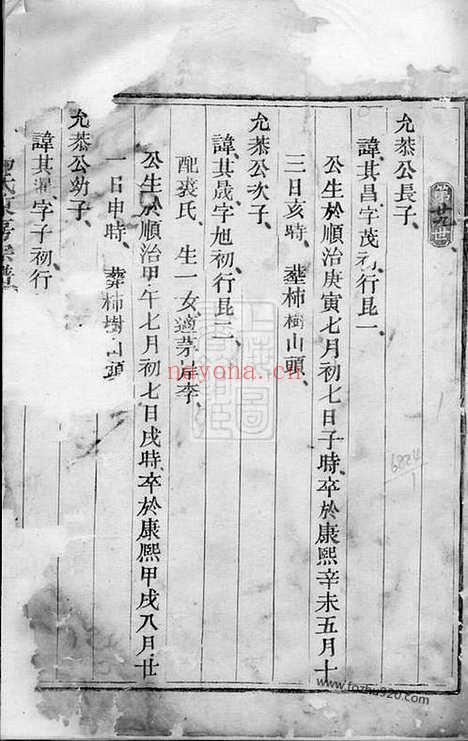 第十九世
允恭公長子、
諱其昌字茂初行昆一、
公生於順治庚寅七月初七日子時卒於康熙辛未五月十
三日亥時、葬柿樹山頭、
允恭公次子、
諱其晟字旭初行昆三、
配裘氏、生一女適茅岸李、
公生於順治甲午七月初七日戌時卒於康熙甲戌八月廿
一日申時、葬柿樹山頭
允恭公幼子、
諱其 字子初行
氏東房宗譜
6224
1
nayona.cn
www.fozhu920.com